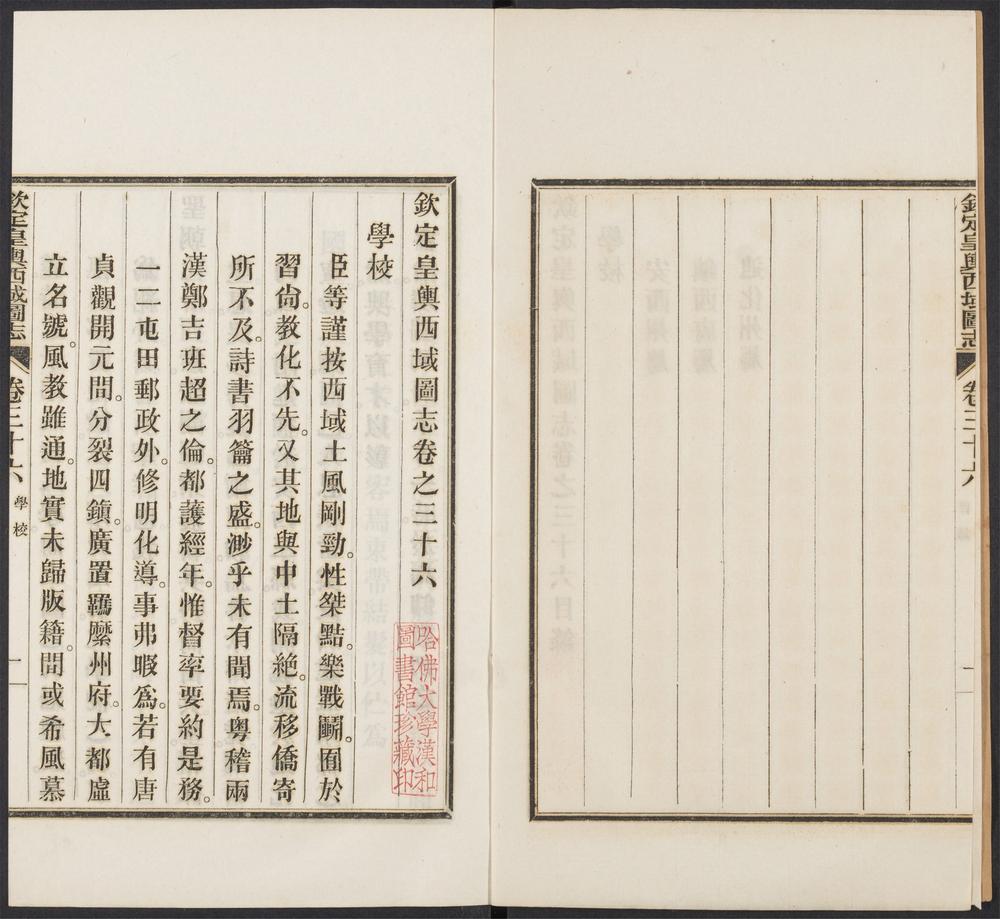 欽定皇輿西域圖志
卷三十六
一
欽定皇輿西域圖志卷之三十六
學校
臣等謹按西域土風剛勁。性桀黠。樂戰鬭。囿於
習尙。敎化不先。又其地與中土隔絶。流移僑寄
所不及。詩書羽籥之盛。渺乎未有聞焉。粵稽兩
漢鄭吉班超之倫。都護經年。惟督率要約是務。
一二屯田郵政外。修明化導。事弗暇爲。若有唐
貞觀開元間。分裂四鎭。廣置羈縻州府。大都虛
立名號。風敎雖通。地實未歸版籍。間或希風慕
欽定皇輿西域圖志
卷三十六
學校
一
哈佛大學漢和
圖書館珍藏印